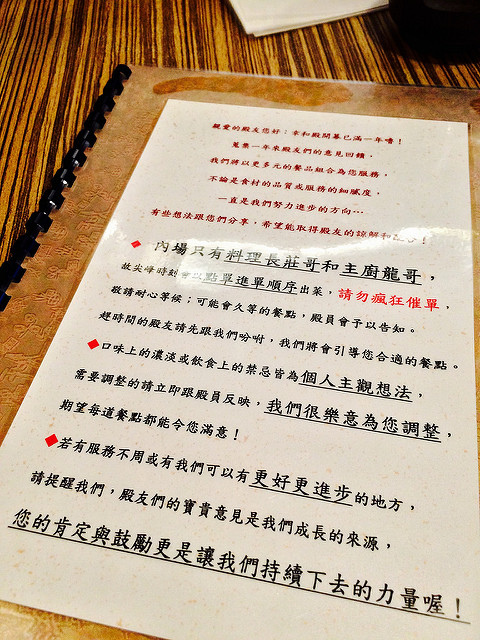 親愛的殿友您好：幸和殿開幕已滿一年嚕！
蒐集一年來殿友們的意見回饋，
我們將以更多元的餐品組合為您服務，
不論是食材的品質或服務的細膩度，
一直是我們努力進步的方向…
有些想法跟您們分享，希望能取得殿友的諒解和！
◆ 內場只有料理長莊哥和主廚龍哥，
故尖峰時刻會以點單進單順序出菜，請勿瘋狂催單，
敬請耐心等候；可能會久等的餐點，殿員會予以告知。
趕時間的殿友請先跟我們吩咐，我們將會引導您合適的餐點。
◆口味上的濃淡或飲食上的禁忌皆為個人主觀想法，
需要調整的請立即跟殿員反映，我們很樂意為您調整，
期望每道餐點都能令您滿意！
◆若有服務不周或有我們可以有更好更進步的地方，
請提醒我們，殿友們的寶貴意見是我們成長的來源，
您的肯定與鼓勵更是讓我們持續下去的力量喔！